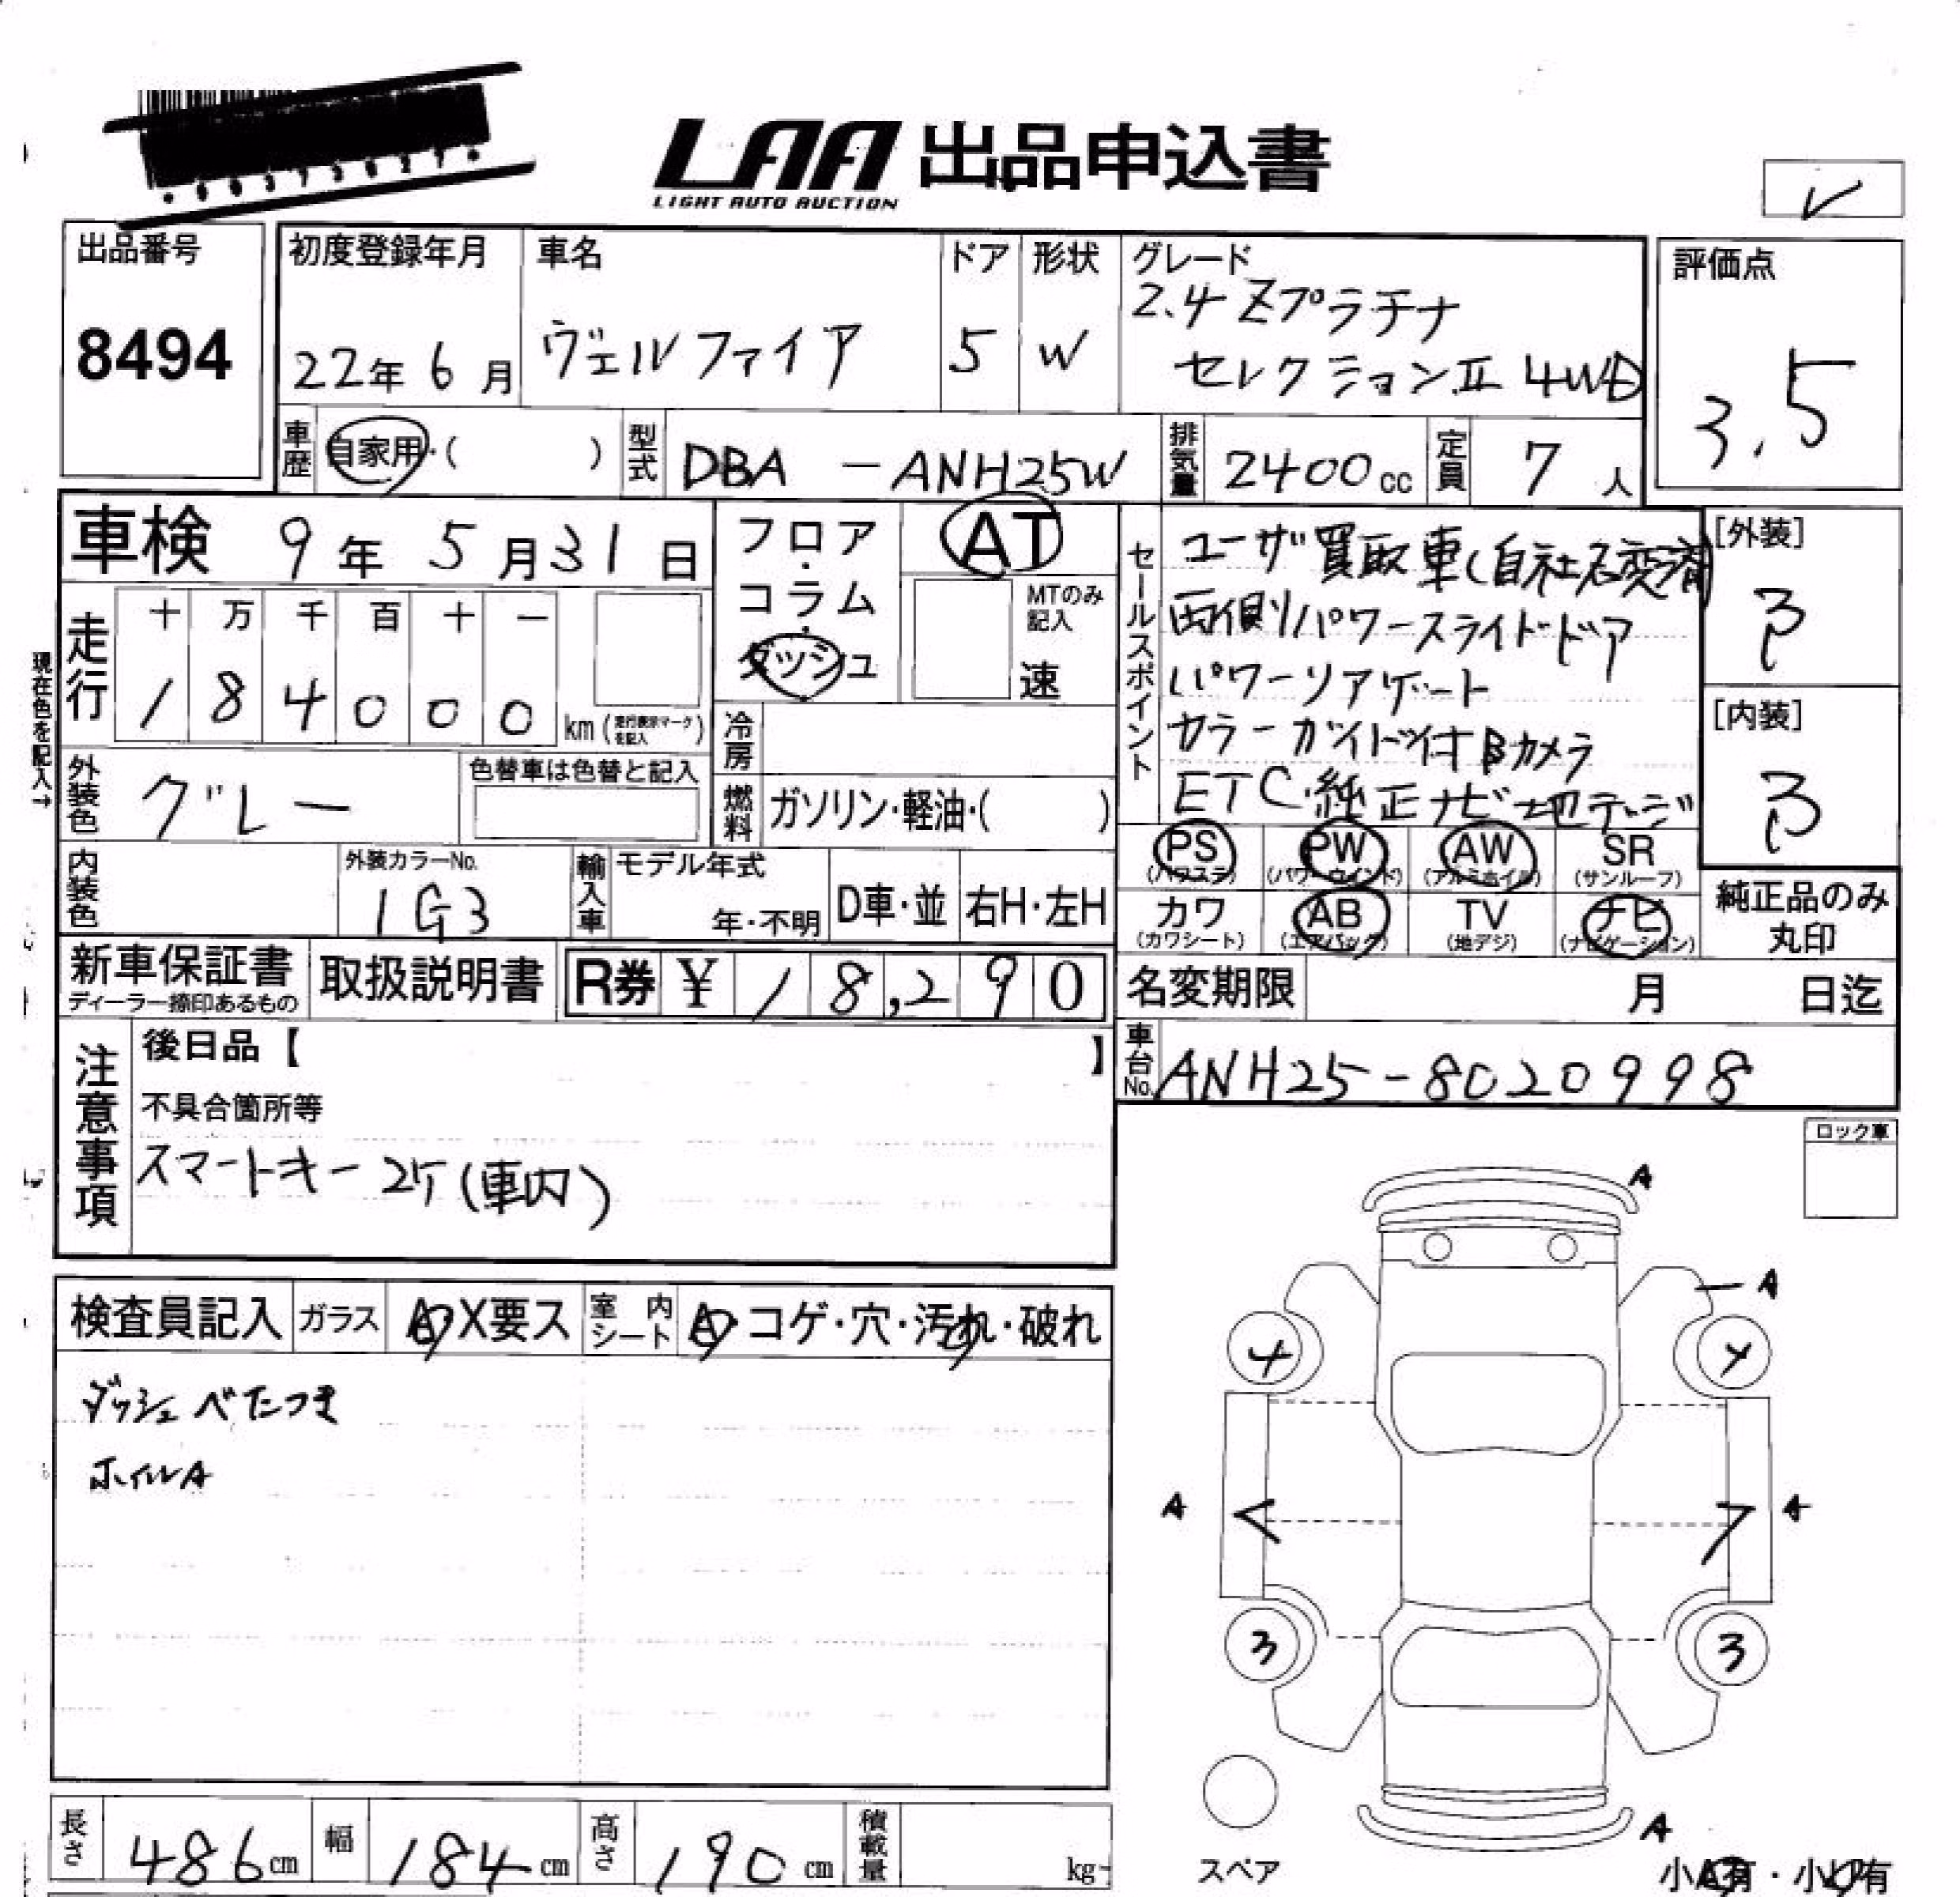 LAA 出品申込書
LIGHT AUTO AUCTION
出品番号
8494
初度登録年月
22年6月
車名
ヴェルファイア
ドア
5
形状
W
グレード
2.4 Zプラチナ
セレクションⅡ 4WD
評価点
3.5
車歴
自家用・( )
型式
DBA - ANH25W
排気量
2400cc
定員
7人
車検 9年5月31日
フロア・コラム・ダッシュ
AT
MTのみ記入
速
走行
十 万 千 百 十 一
1 8 4 0 0 0 km (走行表示マークを記入)
現在色を記入→
冷房
燃料
ガソリン・軽油・( )
外装色
グレー
色替車は色替と記入
内装色
外装カラーNo.
1G3
輸入車
モデル年式
年・不明
D車・並
右H・左H
セールスポイント
ユーザ買取車(自社名変済)
両側パワースライドドア
パワーリアゲート
カラーガイド付Bカメラ
ETC・純正ナビ地デジ
[外装]
3
[内装]
3
PS
(パワステ)
PW
(パワーウインド)
AW
(アルミホイル)
SR
(サンルーフ)
カワ
(カワシート)
AB
(エアバック)
TV
(地デジ)
ナビ
(ナビゲーション)
純正品のみ丸印
新車保証書
ディーラー捺印あるもの
取扱説明書
R券 ¥ 18,290
名変期限 月 日迄
車台No.
ANH25-8020998
注意事項
後日品【 】
不具合箇所等
スマートキー 2ケ(車内)
ロック車
検査員記入
ガラス
A・X要ス
室内シート
A・コゲ・穴・汚れ・破れ
ダッシュベたつき
ホイルA
A
A
4
A
A
3
3
A
スペア
長さ
486cm
幅
184cm
高さ
190cm
積載量
kg
小A有・小U有